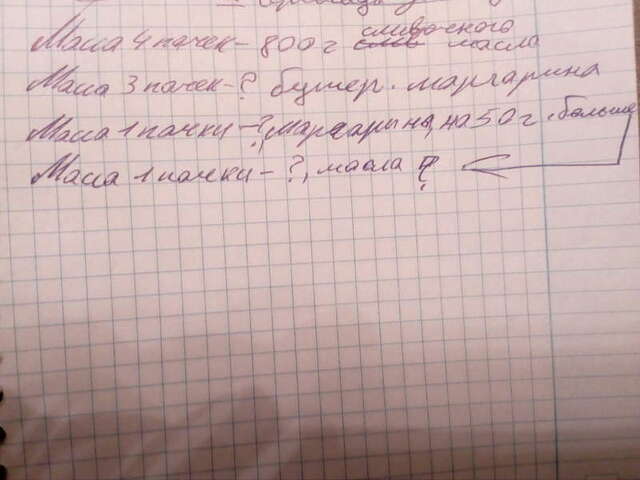 Масса 4 пачек - 800 г сливочного масла
Масса 3 пачек - ? бутер. маргарина
Масса 1 пачки - ?, маргарины, на 50 г больше
Масса 1 пачки - ?, масла ?